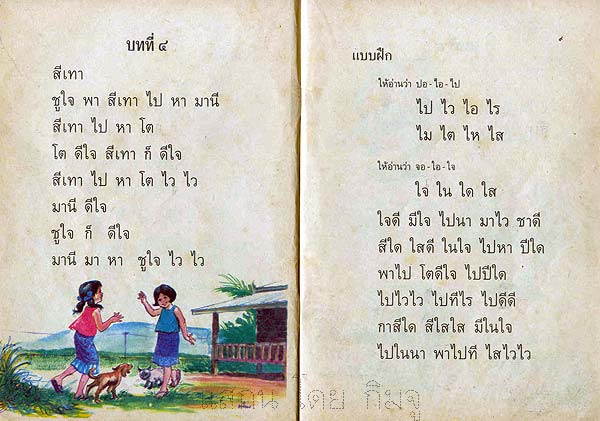 บทที่ ๔
สีเทา
ชูใจ พา สีเทา ไป หา มานี
สีเทา ไป หา โต
โต ดีใจ สีเทา ก็ ดีใจ
สีเทา ไป หา โต ไว ไว
มานี ดีใจ
ชูใจ ก็ ดีใจ
มานี มา หา ชูใจ ไว ไว
แบบฝึก
ให้อ่านว่า ปอ-ไอ-ไป
ไป ไว ไอ ไร
ไม ไต ไห ไส
ให้อ่านว่า จอ-ใอ-ใจ
ใจ ใน ใด ใส
ใจดี มีใจ ไปนา มาไว ชาดี
สีใด ใสดี ในใจ ไปหา ปีใด
พาไป โตดีใจ ไปปีใด
ไปไวไว ไปทีไร ไปดีดี
กาสีใด สีใสใส มีในใจ
ไปในนา พาไปที ใสไวไว
แสกน โดย กิมจู